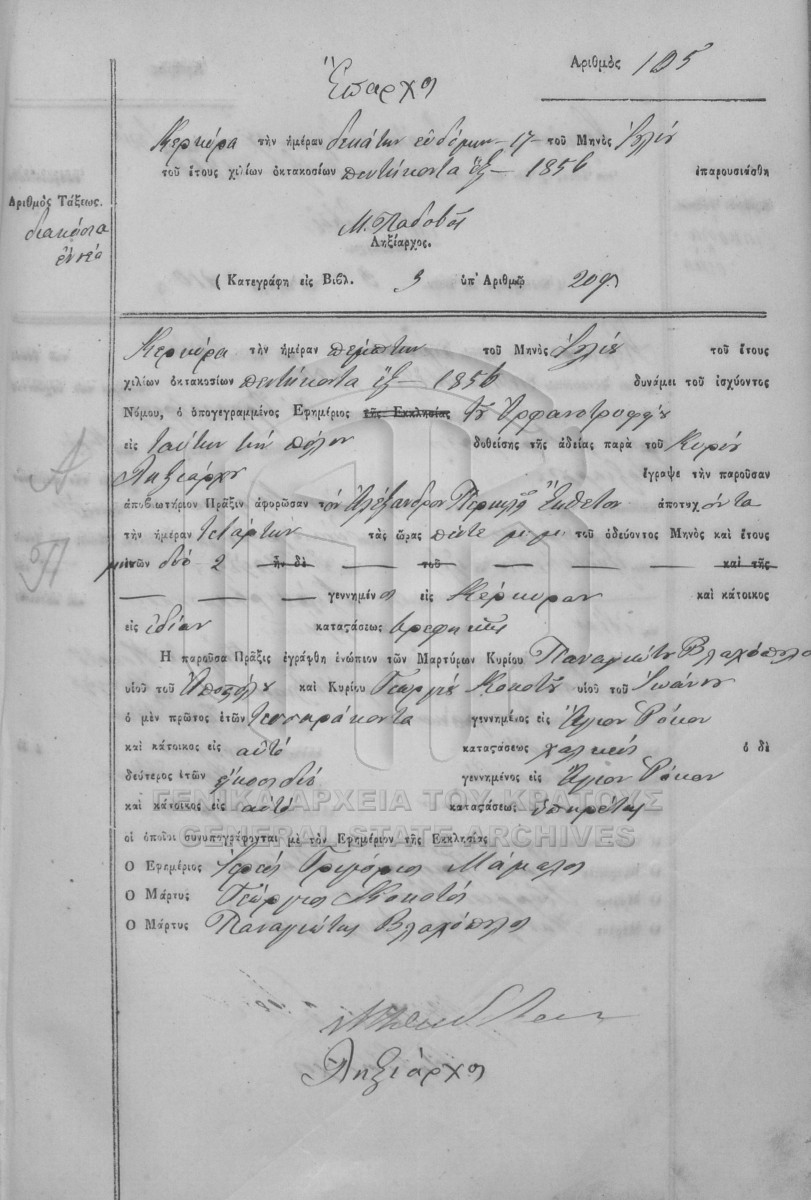 Ἔπαρχος
Ἀριθμὸς 105
Κερκύρα τὴν ἡμέραν δεκάτην εὐδόμην - 17 - τοῦ Μηνὸς Ἰουλίου
τοῦ ἔτους χιλίων ὀκτακοσίων πεντήκοντα ἓξ - 1856 ἐπαρουσιάσθη
Ἀριθμὸς Τάξεως.
διακόσια
ἐννέα
Μ. Παδοβᾶς
Ληξίαρχος.
( Κατεγράφη εἰς Βιβλ. 3 ὑπ' Ἀριθμῷ 209
Κερκύρα τὴν ἡμέραν πέμπτην τοῦ Μηνὸς Ἰουλίου τοῦ ἔτους
χιλίων ὀκτακοσίων πεντήκοντα ἓξ - 1856 δυνάμει τοῦ ἰσχύοντος
Νόμου, ὁ ὑπογεγραμμένος Ἐφημέριος τῆς Ἐκκλησίας τοῦ Ὀρφανοτροφείου
εἰς ταύτην τὴν πόλιν δοθείσης τῆς ἀδείας παρὰ τοῦ Κυρίου
Ληξιάρχου ἔγραψε τὴν παροῦσαν
ἀποβιωτήριον Πρᾶξιν ἀφορῶσαν τὸν Ἀλέξανδρον Ἔκθετον ἀποτυχόντα
τὴν ἡμέραν τετάρτην τὰς ὥρας πέντε μ.μ. τοῦ ὁδεύοντος Μηνὸς καὶ ἔτους
μηνῶν δύο 2 ἦν δὲ — τοῦ — — — — καὶ τῆς
— — — γεννημένος εἰς Κέρκυραν καὶ κάτοικος
εἰς ἰδίαν καταςάσεως βρεφικῆς
Ἡ παροῦσα Πρᾶξις ἐγράφθη ἐνώπιον τῶν Μαρτύρων Κυρίου Παναγιώτου Βλαχόπουλου
υἱοῦ τοῦ Ἀποστόλου καὶ Κυρίου Γεωργίου Κοκοτοῦ υἱοῦ τοῦ Ἰωάννου
ὁ μὲν πρῶτος ἐτῶν τεσσαράκοντα γεννημένος εἰς Ἅγιον Ρόκον
καὶ κάτοικος εἰς αὐτὸ καταςάσεως χαλκεύς ὁ δὲ
δεύτερος ἐτῶν εἴκοσι δύο γεννημένος εἰς Ἅγιον Ρόκον
καὶ κάτοικος εἰς αὐτὸ καταςάσεως ὑπηρέτης
οἱ ὁποῖοι συνυπογράφονται μὲ τὸν Ἐφημέριον τῆς Ἐκκλησίας
Ὁ Ἐφημέριος Ἱερεὺς Γρηγόριος Μάμαλος
Ὁ Μάρτυς Γεώργιος Κοκοτός
Ὁ Μάρτυς Παναγιώτης Βλαχόπουλος
Ληξίαρχος
Α
Π
ΓΕΝΙΚΑ ΑΡΧΕΙΑ ΤΟΥ ΚΡΑΤΟΥΣ
GENERAL STATE ARCHIVES